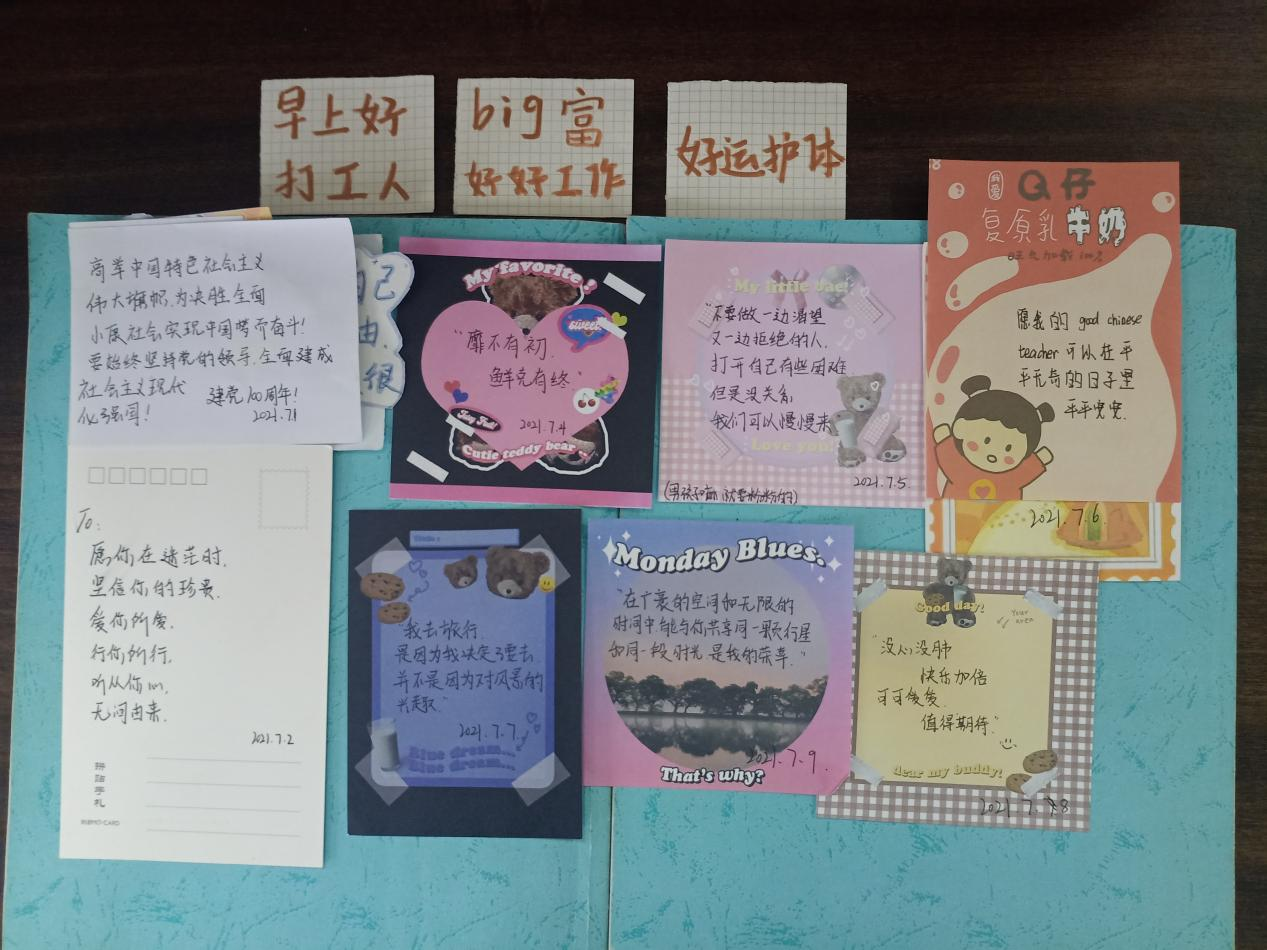 早上好
打工人
big富
好好工作
好运护体
高举中国特色社会主义
伟大旗帜,为决胜全面
小康社会,实现中国梦而奋斗!
要始终坚持党的领导,全面建成
社会主义现代
化强国!
建党100周年!
2021.7.1
己
由.
很
My favorite!
sweet
"靡不有初,
鲜克有终"
2021.7.4
Cutie teddy bear
"不要做一边渴望
又一边拒绝的人.
打开自己有些困难
但是没关系
我们可以慢慢来
Love you!
2021.7.5
Q仔
复原乳 牛奶
愿我的 good chinese
teacher 可以在平
平无奇的日子里
平平安安.
2021.7.6
To:
愿你在迷茫时,
坚信你的珍贵.
爱你所爱,
行你所行,
听从你心,
无问西东.
2021.7.2
"我去旅行,
是因为我决定了要去
并不是因为对风景的
兴趣."
2021.7.7
Blue dream...
Blue dream...
Monday Blues.
"在广袤的空间和无限的
时间中,能与你共享同一颗行星
和同一段时光,是我的荣幸."
2021.7.9.
That's why?
Good day!
Your
"没心没肺
快乐加倍
可可爱爱
值得期待"
dear my buddy!
2021.7.8